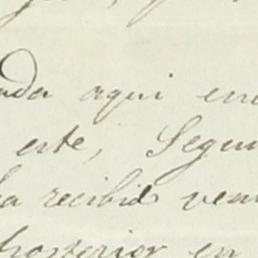 nada aqui en
este, Segun
la recibid ven
posterior en